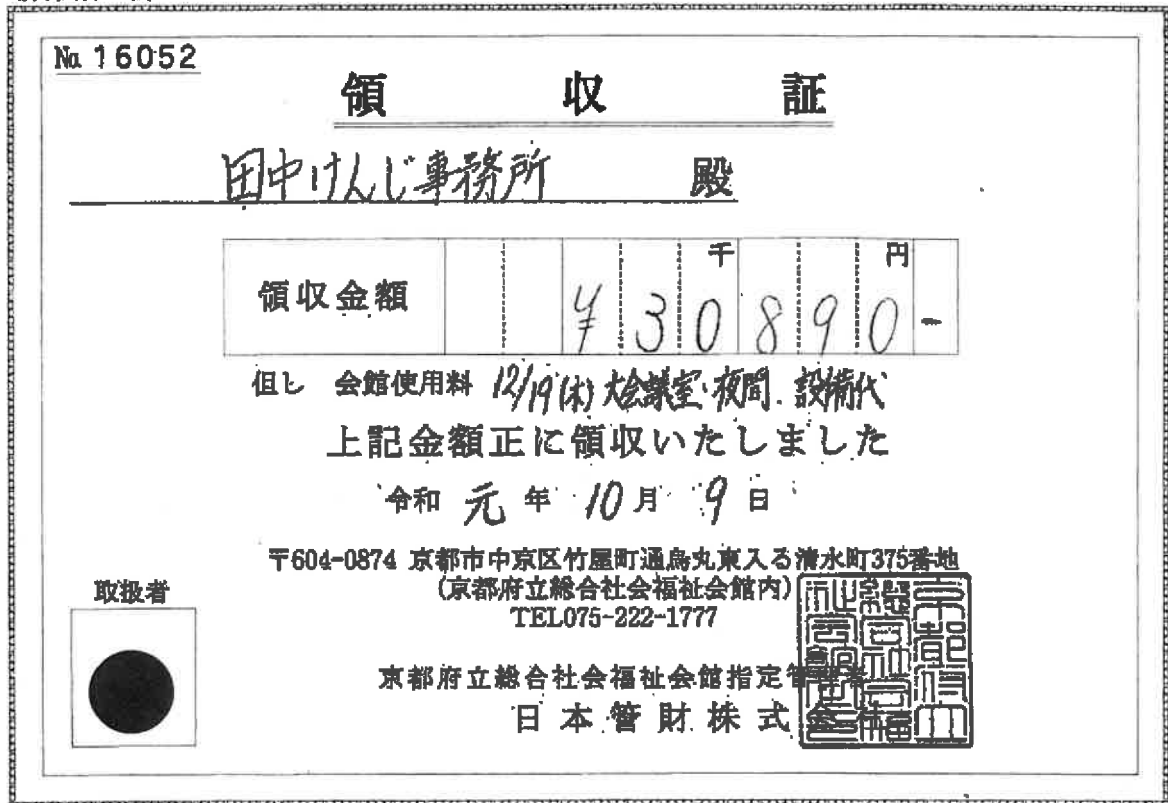 No. 16052
領収証
田中けんじ事務所 殿
領収金額 千 円
¥30890-
但し 会館使用料 12/19(木)大会議室・夜間・設備代
上記金額正に領収いたしました
令和 元 年 10 月 9 日
〒604-0874 京都市中京区竹屋町通烏丸東入る清水町375番地
(京都府立総合社会福祉会館内)
TEL075-222-1777
取扱者
京都府立総合社会福祉会館指定管理者
日本管財株式会社